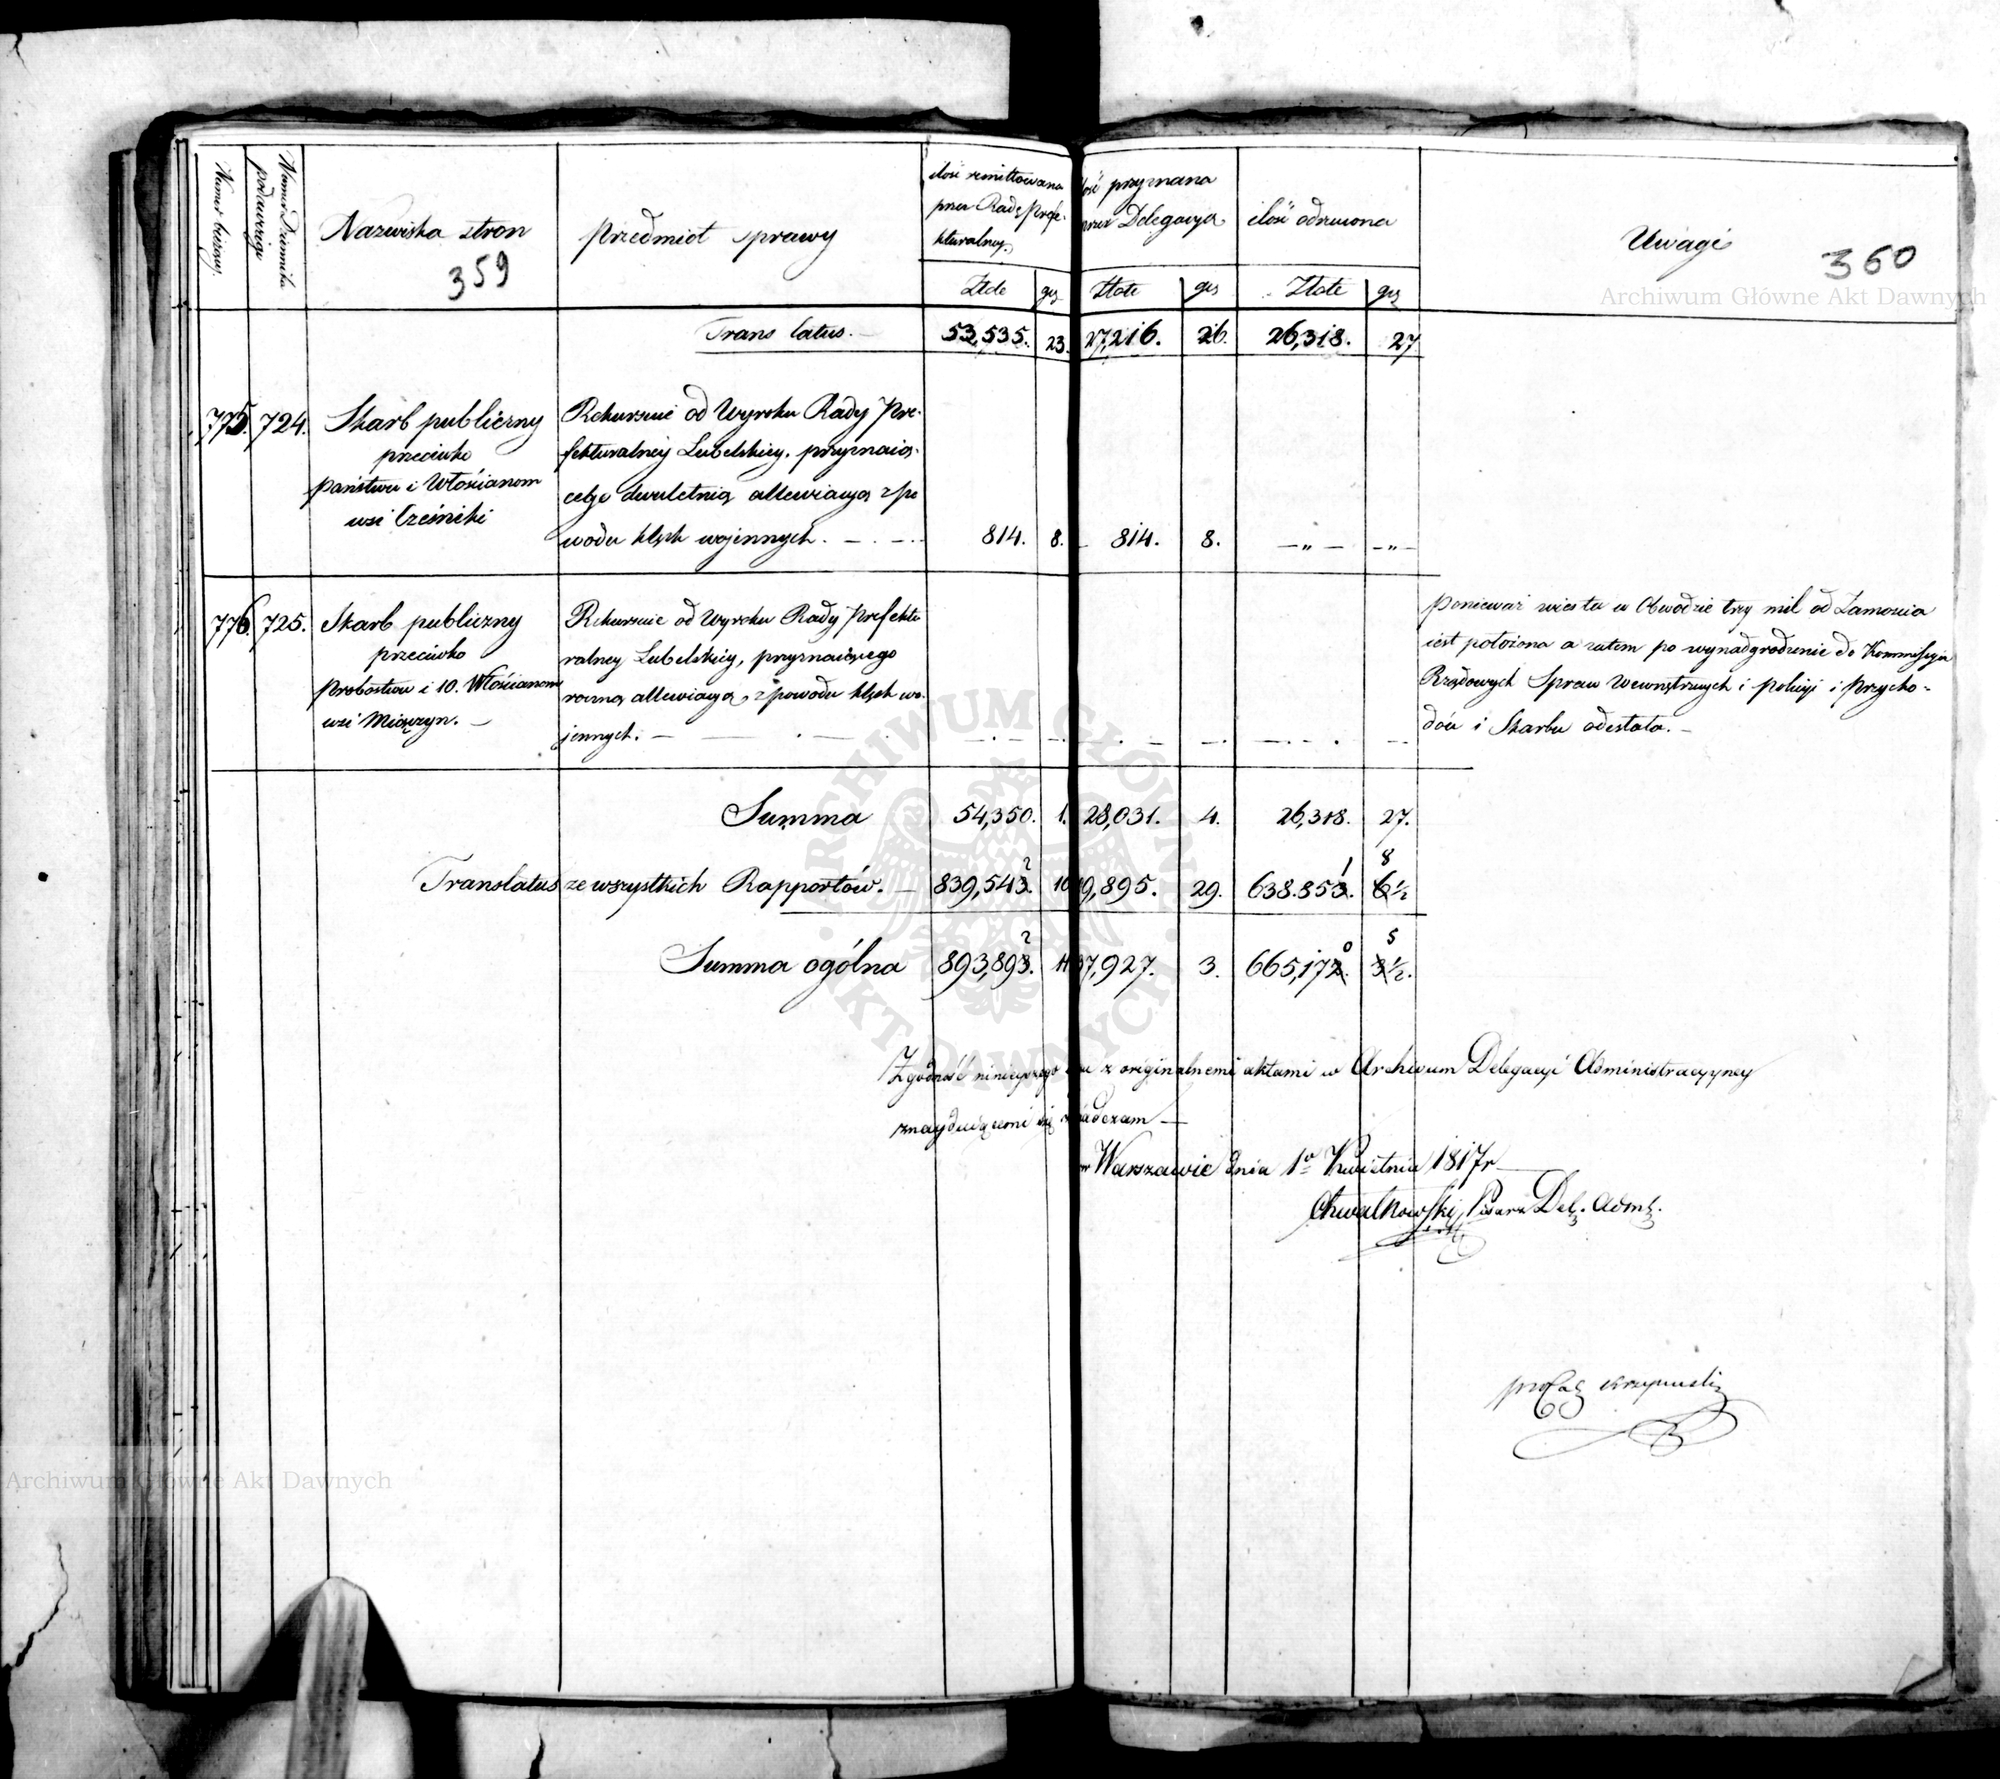 Numer bieżący.
Numer Dziennika podawczego
Nazwiska stron
359
Przedmiot sprawy
ilość remittowana
przez Radę Prefe-
kturalną.
Złote gr
ilość przyznana
przez Delegacyą
Złote gr
ilość odrzucona
Złote gr
Uwagi
360
Archiwum Główne Akt Dawnych
Translatus. — 53,535. 23. 27,216. 26. 26,318. 27
775. 724. Skarb publiczny
przeciwko
Państwu i Włościanom
wsi Cześniki
Rekursuie od Wyroku Rady Pre-
fekturalney Lubelskiey, przyznaią-
cego dwuletnią allewiacyą z po
wodu klęsk woiennych. 814. 8. 814. 8. — „ — — „ —
776. 725. Skarb publiczny
przeciwko
Probostwu i 10. Włościanom
wsi Miączyn. —
Rekursuie od Wyroku Rady Prefektu
ralney Lubelskiey, przyznaiącego
roczną allewiacyą z powodu klęsk wo-
jennych. —
Ponieważ wieś ta w Obwodzie trzy mil od Zamościa
iest położona a zatem po wynadgrodzenie do Kommissyi
Rządowych Spraw Wewnętrznych i Policyi i Przycho-
dów i Skarbu odesłata. —
Summa 54,350. 1. 28,031. 4. 26,318. 27.
Translatus ze wszystkich Rapportów. — 839,543. 2 10 9,895. 29. 638.853. 1 6 8 ½
Summa ogólna 893,893. 2 11 37,927. 3. 665,172. 0 3 5 ½.
Zgodność ninieyszego z originalnemi aktami w Archiwum Delegacyi Administracyyney
znayduiącemi się świadczam —
w Warszawie dnia 1o Kwietnia 1817r
Chwałkowski, Pisarz Del. Adm.
Archiwum Główne Akt Dawnych
ARCHIWUM GŁÓWNE AKT DAWNYCH